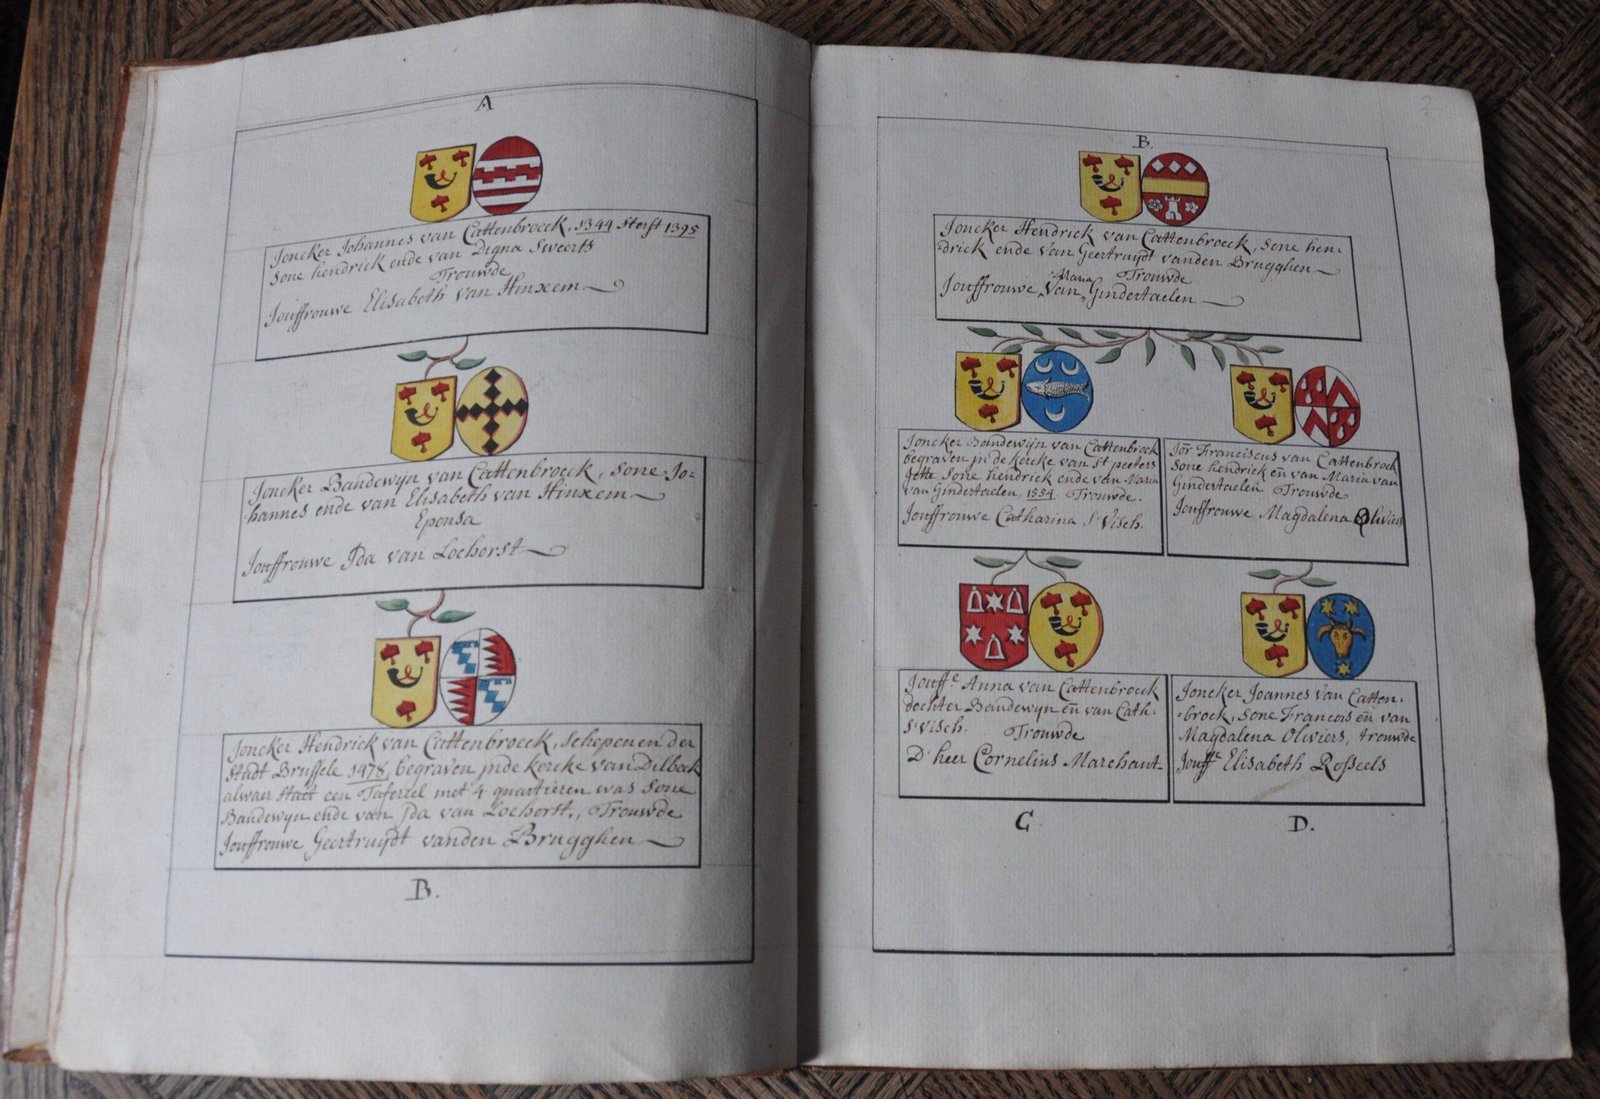 A
Joncker Johannes van Cattenbroeck, 1344 sterft 1395
sone hendrick ende van Digna Sweerts
Trouwde
Jouffrouwe Elisabeth van Hinxem
Joncker Baudewijn van Cattenbroeck, sone Jo=
hannes ende van Elisabeth van Hinxem
Epousa
Jouffrouwe Ida van Lochorst
Joncker Hendrick van Cattenbroeck, schepenen der
stadt Brussele 1478, begraven inde kercke van Dilbeek
alwaer staet een Tafereel met 4 quartieren was sone
Baudewijn ende van Ida van Lochorst, Trouwde
Jouffrouwe Geertruijdt vanden Brugghen
B.
2
B.
Joncker Hendrick van Cattenbroeck, sone hen=
drick ende van Geertruijdt vanden Brugghen
Trouwde
Jouffrouwe Maria van Gindertaelen
Joncker Baudewijn van Cattenbrock
begraven in de kercke van St peeters
Jette sone hendrick ende van Maria
van Gindertaelen, 1554 Trouwde.
Jouffrouwe Catharina s'Visch.
Jor Franciscus van Cattenbrock
sone hendrick en̄ van Maria van
Gindertaelen Trouwde
Jouffrouwe Magdalena Oliviers
Jouffe Anna van Cattenbroeck
dochter Baudewijn en̄ van Cath:
s'Visch. Trouwde
D'heer Cornelius Marchant
Joncker Joannes van Catten=
brock, sone Francois en̄ van
Magdalena Oliviers, trouwde
Jouffe Elisabeth Rosseels
C
D.